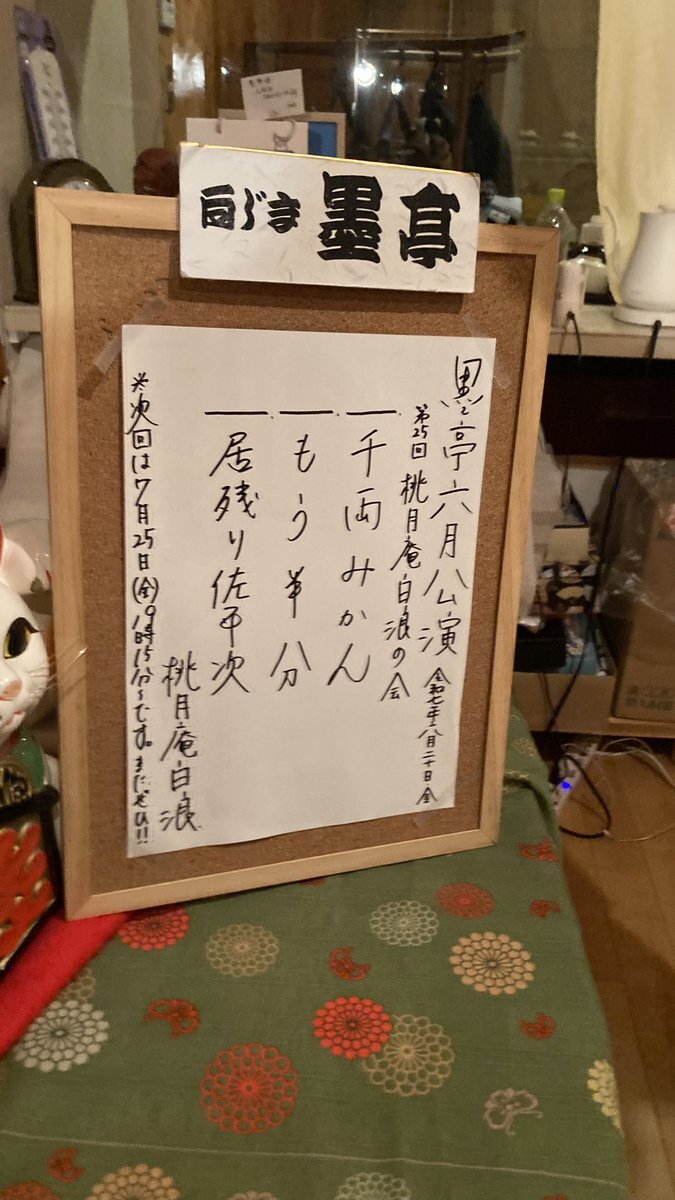 向じま 墨亭
墨亭六月公演 令和七年六月二十日金
第25回 桃月庵白浪の会
一 千両みかん
一 もう半分
一 居残り佐平次
桃月庵白浪
※次回は7月25日(金)19時15分〜です。またぜひ!!